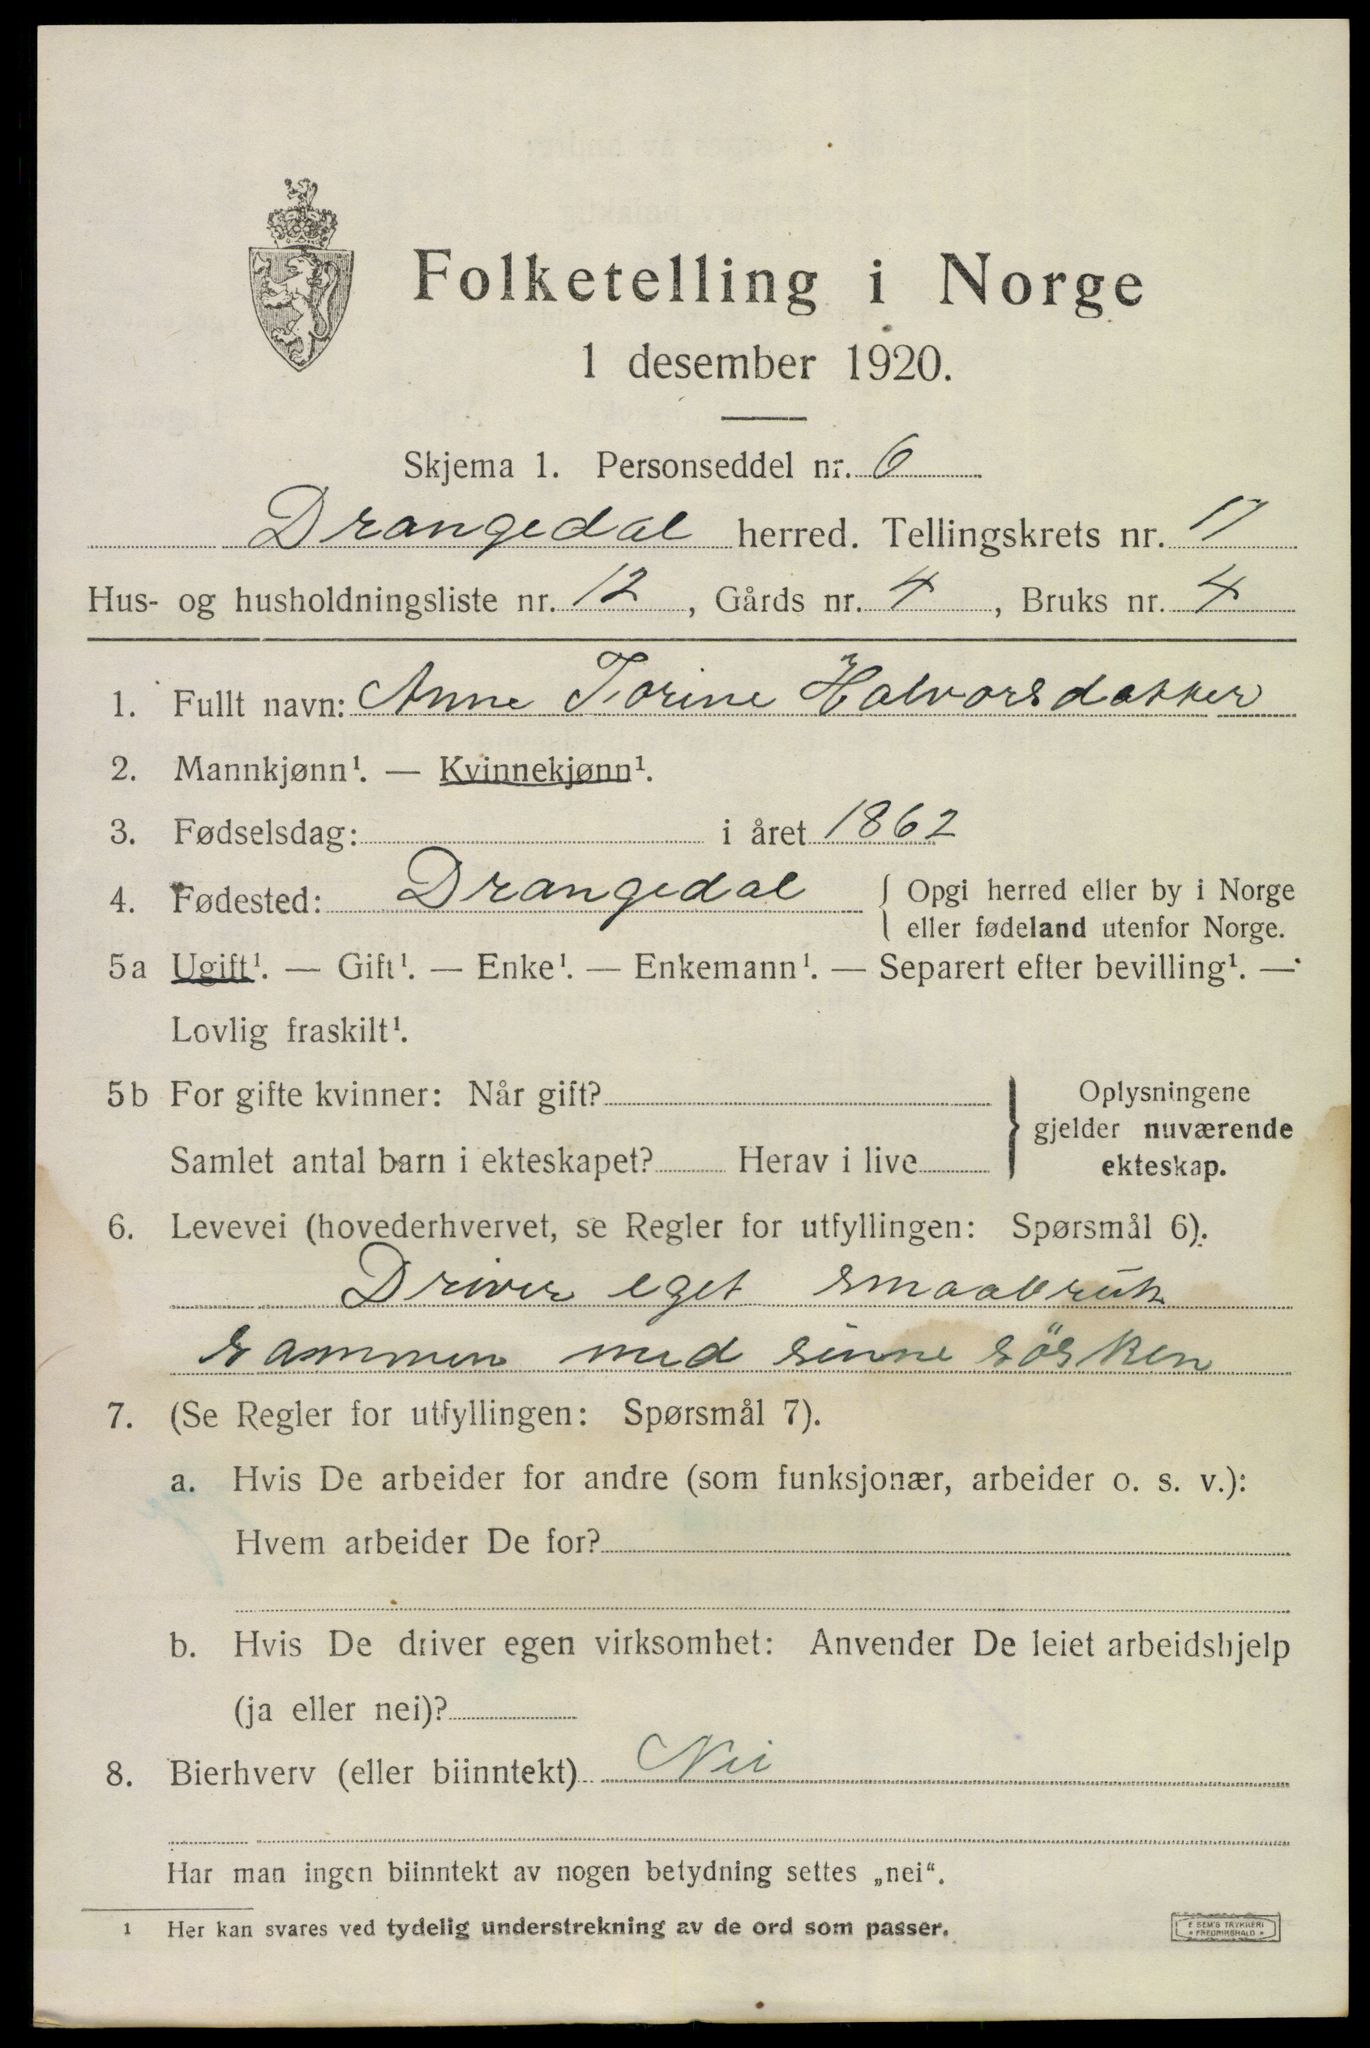 Folketelling i Norge
1 desember 1920.
Skjema 1. Personseddel nr. 6
Drangedal herred. Tellingskrets nr. 17
Hus- og husholdningsliste nr. 12, Gårds nr. 4, Bruks nr. 4
1. Fullt navn: Anne Torine Halvorsdatter
2. Mannkjønn¹. — Kvinnekjønn¹.
3. Fødselsdag: i året 1862
4. Fødested: Drangedal { Opgi herred eller by i Norge
eller fødeland utenfor Norge.
5a Ugift¹. — Gift¹. — Enke¹. — Enkemann¹. — Separert efter bevilling¹. —
Lovlig fraskilt¹.
5b For gifte kvinner: Når gift? } Oplysningene
gjelder nuværende
Samlet antal barn i ekteskapet? Herav i live ekteskap.
6. Levevei (hovederhvervet, se Regler for utfyllingen: Spørsmål 6).
Driver eget smaabruk
sammen med sinne sösken
7. (Se Regler for utfyllingen: Spørsmål 7).
a. Hvis De arbeider for andre (som funksjonær, arbeider o. s. v.):
Hvem arbeider De for?
b. Hvis De driver egen virksomhet: Anvender De leiet arbeidshjelp
(ja eller nei)?
8. Bierhverv (eller biinntekt) Nei
Har man ingen biinntekt av nogen betydning settes „nei“.
¹ Her kan svares ved tydelig understrekning av de ord som passer.
E SEM'S TRYKKERI
* FREDRIKSHALD *